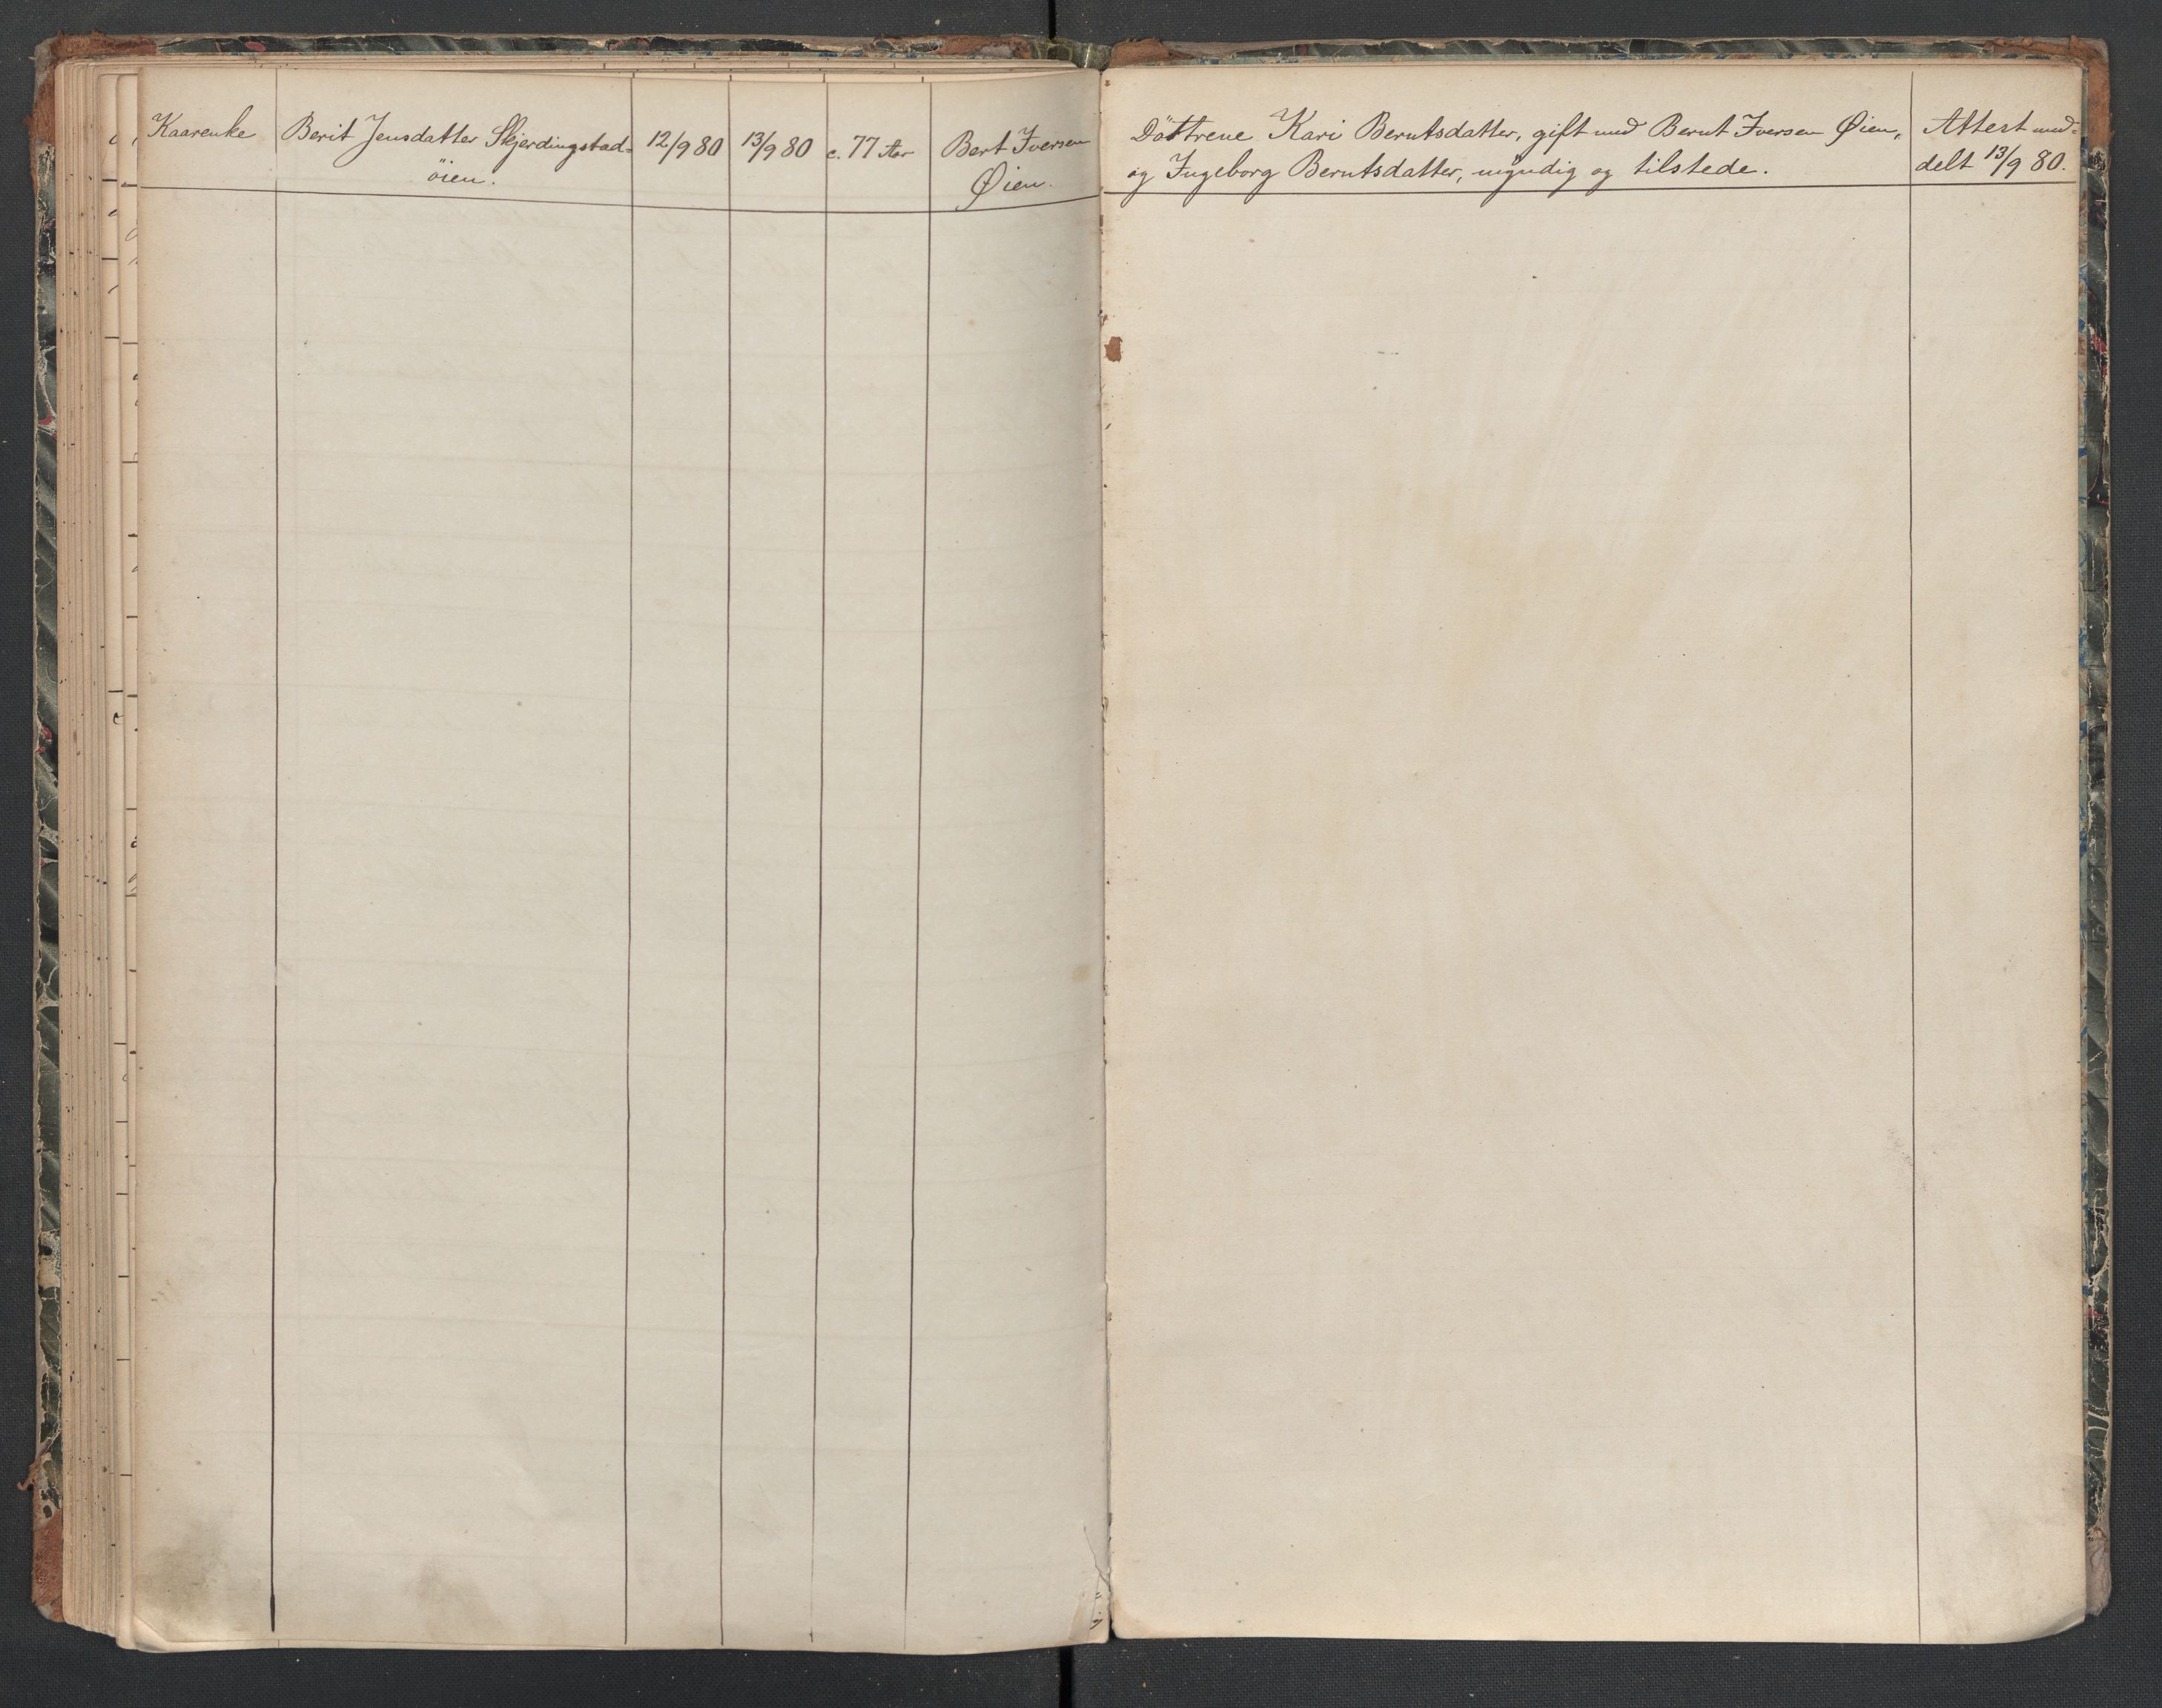 Kaarenke
Berit Jensdatter Skjerdingstad-
öien.
12/9 80
13/9 80
c. 77 Aar
Bert Iversen
Øien.
Döttrene Kari Berntsdatter, gift med Bernt Iversen Øien,
og Ingeborg Berntsdatter, myndig og tilstede.
Attest med-
delt 13/9 80.